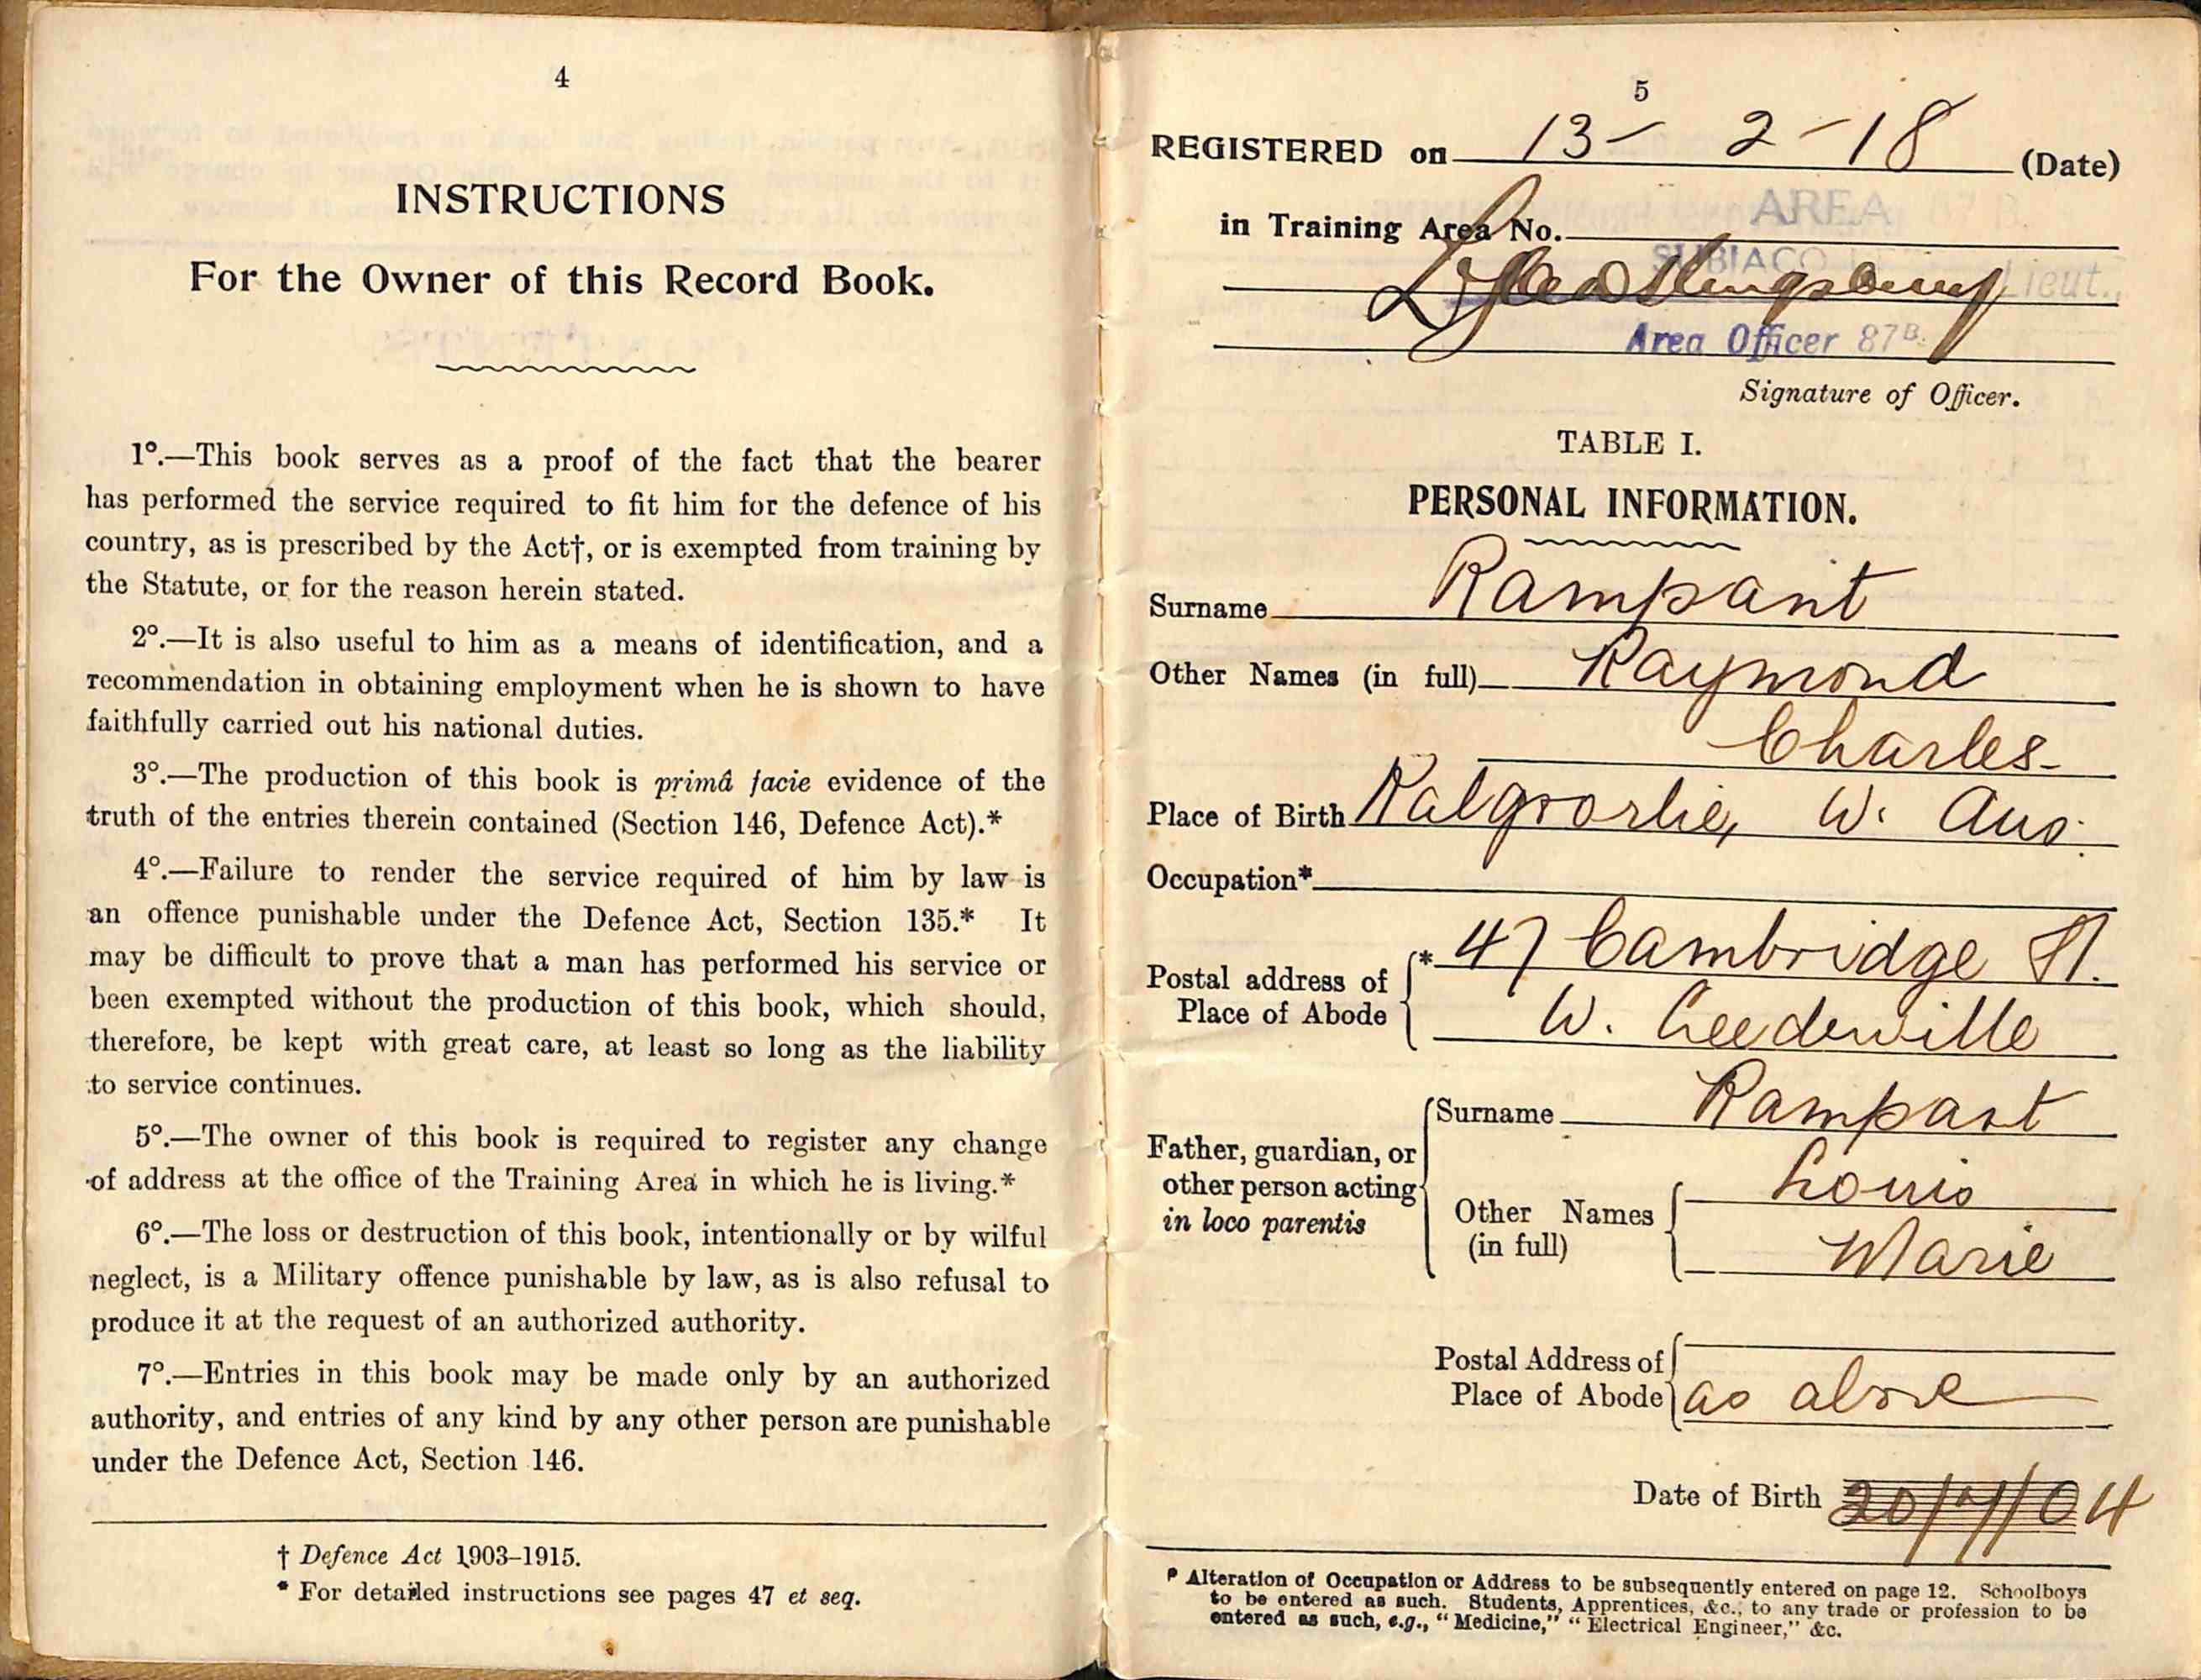 4
INSTRUCTIONS
For the Owner of this Record Book.
1°.—This book serves as a proof of the fact that the bearer
has performed the service required to fit him for the defence of his
country, as is prescribed by the Act†, or is exempted from training by
the Statute, or for the reason herein stated.
2°.—It is also useful to him as a means of identification, and a
recommendation in obtaining employment when he is shown to have
faithfully carried out his national duties.
3°.—The production of this book is primâ facie evidence of the
truth of the entries therein contained (Section 146, Defence Act).*
4°.—Failure to render the service required of him by law is
an offence punishable under the Defence Act, Section 135.* It
may be difficult to prove that a man has performed his service or
been exempted without the production of this book, which should,
therefore, be kept with great care, at least so long as the liability
to service continues.
5°.—The owner of this book is required to register any change
of address at the office of the Training Area in which he is living.*
6°.—The loss or destruction of this book, intentionally or by wilful
neglect, is a Military offence punishable by law, as is also refusal to
produce it at the request of an authorized authority.
7°.—Entries in this book may be made only by an authorized
authority, and entries of any kind by any other person are punishable
under the Defence Act, Section 146.
† Defence Act 1903–1915.
* For detailed instructions see pages 47 et seq.
5
REGISTERED on 13 - 2 - 18 (Date)
AREA
in Training Area No.
SUBIACO
Lieut.,
Area Officer 87B.
Signature of Officer.
TABLE I.
PERSONAL INFORMATION.
Surname Rampant
Other Names (in full) Raymond
Charles
Place of Birth Kalgoorlie, W. Aus.
Occupation*
Postal address of Place of Abode * 47 Cambridge St.
W. Leederville
Father, guardian, or other person acting in loco parentis
Surname Rampant
Other Names (in full) Louis
Marie
Postal Address of
Place of Abode as above
Date of Birth 20/7/04
* Alteration of Occupation or Address to be subsequently entered on page 12. Schoolboys
to be entered as such. Students, Apprentices, &c., to any trade or profession to be
entered as such, e.g., "Medicine," "Electrical Engineer," &c.